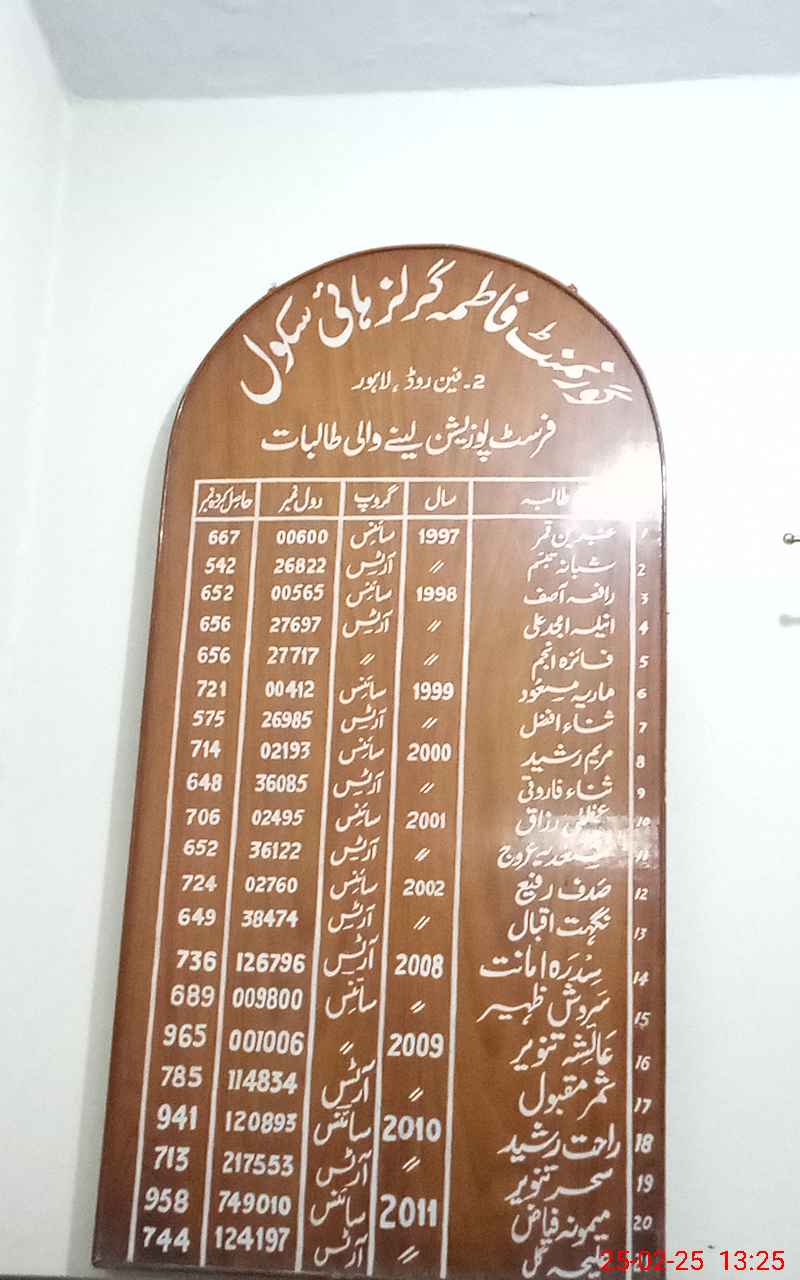 گورنمنٹ فاطمہ گرلز ہائی سکول
2۔ فین روڈ، لاہور
فرسٹ پوزیشن لینے والی طالبات
طالبہ سال گروپ رول نمبر حاصل کردہ نمبر
1 قمر 1997 سائنس 00600 667
2 شبانہ تبسم 〃 آرٹس 26822 542
3 رافعہ آصف 1998 سائنس 00565 652
4 انیلہ امجد علی 〃 آرٹس 27697 656
5 فائزہ انجم 〃 〃 27717 656
6 ماریہ مسعود 1999 سائنس 00412 721
7 ثناء افضل 〃 آرٹس 26985 575
8 مریم رشید 2000 سائنس 02193 714
9 ثناء فاروقی 〃 آرٹس 36085 648
10 عظمیٰ رزاق 2001 سائنس 02495 706
11 سعدیہ عروج 〃 آرٹس 36122 652
12 صدف رفیع 2002 سائنس 02760 724
13 نگہت اقبال 〃 آرٹس 38474 649
14 سِدرَہ امانت 2008 آرٹس 126796 736
15 سَروش ظہیر 〃 سائنس 009800 689
16 عائشہ تنویر 2009 〃 001006 965
17 ثمر مقبول 〃 آرٹس 114834 785
18 راحت رشید 2010 سائنس 120893 941
19 سحر تنویر 〃 آرٹس 217553 713
20 میمونہ فیاض 2011 سائنس 749010 958
〃 آرٹس 124197 744
25-02-25 13:25